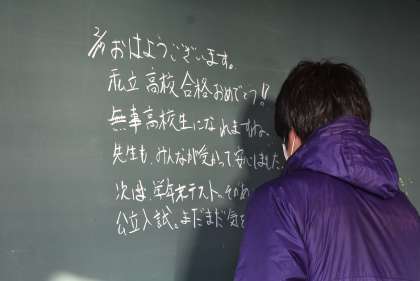 2/11 おはようございます。
私立高校合格おめでとう!!
無事高校生になれますね。
先生も、みんなが受かって安心しました
次は、学年末テスト。その
公立入試。まだまだ気を